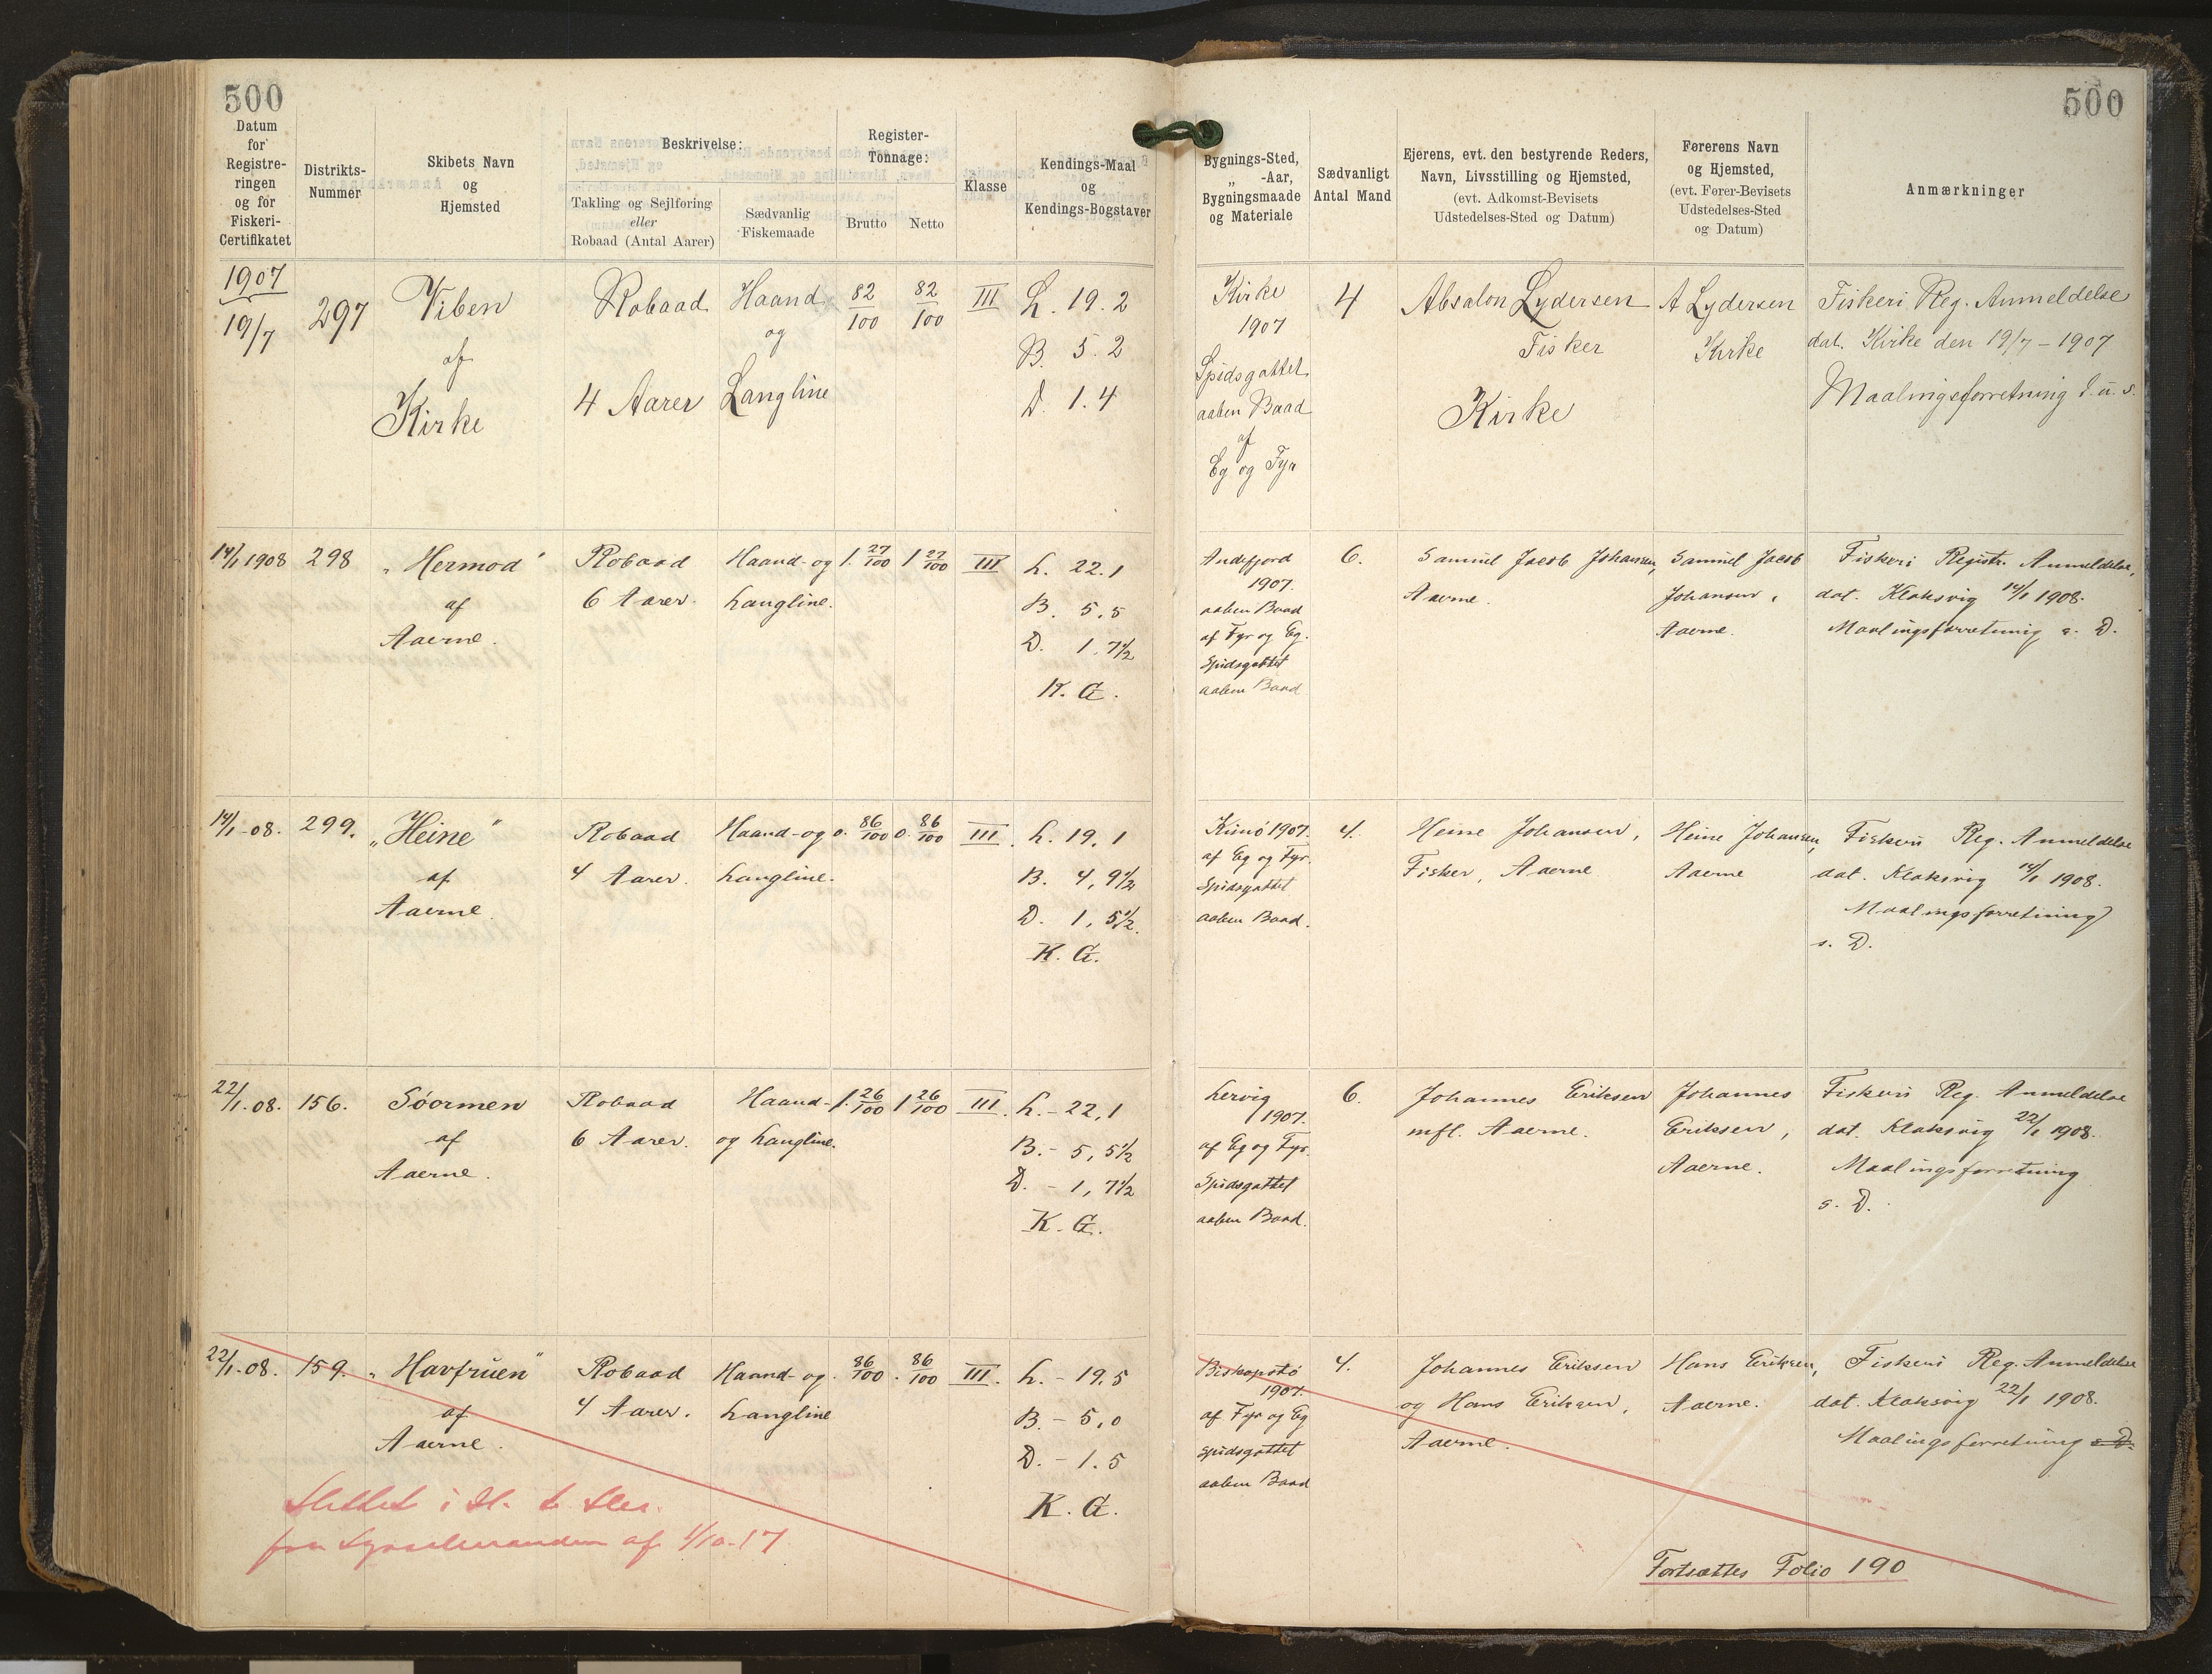 500
500
Datum for Registreringen og for Fiskeri-Certifikatet
Distrikts-Nummer
Skibets Navn og Hjemsted
Beskrivelse:
Takling og Sejlføring eller Robaad (Antal Aarer)
Sædvanlig Fiskemaade
Register-Tonnage:
Brutto
Netto
Klasse
Kendings-Maal og Kendings-Bogstaver
Bygnings-Sted, „ -Aar, Bygningsmaade og Materiale
Sædvanligt Antal Mand
Ejerens, evt. den bestyrende Reders, Navn, Livsstilling og Hjemsted, (evt. Adkomst-Bevisets Udstedelses-Sted og Datum)
Førerens Navn og Hjemsted, (evt. Fører-Bevisets Udstedelses-Sted og Datum)
Anmærkninger
1907
19/7
297
Viben
af
Kirke
Robaad
4 Aarer
Haand
og
Langline
82/100
82/100
III
L. 19.2
B. 5.2
D. 1.4
Kirke
1907
Spidsgattet
aaben Baad
af
Eg og Fyr
4
Absalon Lydersen
Fisker
Kirke
A Lydersen
Kirke
Fiskeri Reg. Anmeldelse
dat. Kirke den 19/7 - 1907
Maalingsforretning d. u. s.
14/1 1908
298
„Hermod"
af
Aaerne.
Robaad
6 Aarer.
Haand- og
Langline.
1. 27/100
1 27/100
III
L. 22.1
B. 5,5
D. 1.7½
K. G.
Andefjord
1907.
aaben Baad
af Fyr og Eg.
Spidsgattet
aaben Baad
6.
Samuel Jacob Johansen,
Aaerne.
Samuel Jacob
Johansen,
Aaerne.
Fiskeri Registr. Anmeldelse,
dat. Klaksvig 14/1 1908.
Maalingsforretning s. D.
14/1-08.
299.
„Heine"
af
Aaerne.
Robaad
4 Aarer.
Haand- og
Langline.
0. 86/100
0. 86/100
III.
L. 19,1
B. 4,9½
D. 1,5½.
K. G.
Kunø 1907.
af Eg og Fyr.
Spidsgattet
aaben Baad.
4.
Heine Johansen,
Fisker, Aaerne
Heine Johansen,
Aaerne
Fiskeri Reg. Anmeldelse
dat. Klaksvig 14/1 1908.
Maalingsforretning
s. D.
22/1.08.
156.
Søormen
af
Aaerne.
Robaad
6 Aarer.
Haand-
og Langline.
1. 26/100
1 26/100
III.
L. - 22,1
B. - 5,5½
D. - 1,7½
K. G.
Lervig
1907.
af Eg og Fyr.
Spidsgattet
aaben Baad.
6.
Johannes Eriksen
mfl. Aaerne.
Johannes
Eriksen,
Aaerne.
Fiskeri Reg. Anmeldelse
dat. Klaksvig 22/1 1908.
Maalingsforretning
s. D.
22/1.08.
159.
„Havfruen"
af
Aaerne.
Robaad
4 Aarer.
Haand- og
Langline
. 86/100
. 86/100
III.
L. - 19.5
B - 5,0
D. - 1.5
K. G.
Biskopstø
1907.
af Fyr og Eg
Spidsgattet
aaben Baad
4.
Johannes Eriksen
og Hans Eriksen,
Aaerne.
Hans Eriksen,
Aaerne.
Fiskeri Reg. Anmeldelse
dat. Klaksvig 22/1 1908.
Maalingsforretning s. D.
Slettet i H.
fra Sysselmanden af 1/10-17
Fortsættes Folio 190